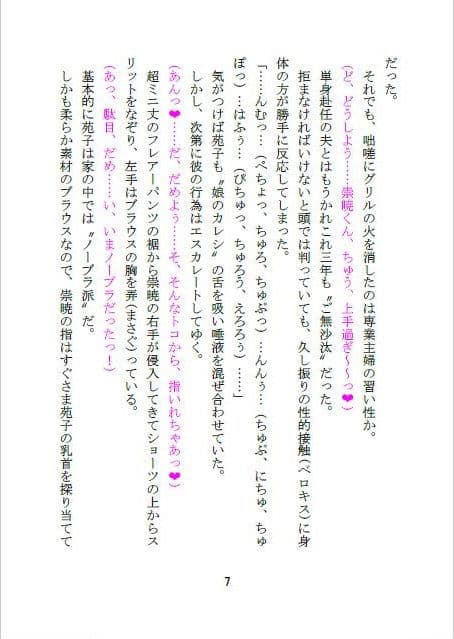 だった。
それでも、咄嗟にグリルの火を消したのは専業主婦の習い性か。
（ど、どうしよう……崇暁くん、ちゅう、上手過ぎ～～っ❤）
単身赴任の夫とはもうかれこれ三年も〝ご無沙汰〟だった。
拒まなければいけないと頭では判っていても、久し振りの性的接触(ベロキス)に身
体の方が勝手に反応してしまった。
「……んむっ…（ぺちょっ、ちゅろ、ちゅぷっ）…んんぅ…（ちゅぷ、にちゅ、ちゅ
ぽっ）…はふぅ…（ぴちゅっ、ちゅろう、えろろぅ）……」
気がつけば苑子も〝娘のカレシ〟の舌を吸い唾液を混ぜ合わせていた。
しかし、次第に彼の行為はエスカレートしてゆく。
（あんっ❤……だ、だめよぅ……そ、そんなトコから、指いれちゃあっ❤）
超ミニ丈のフレアーパンツの裾から崇暁の右手が侵入してきてショーツの上からス
リットをなぞり、左手はブラウスの胸を弄(まさぐ)っている。
（あっ、駄目、だめ……い、いまノーブラだったっ！）
基本的に苑子は家の中では〝ノーブラ派〟だ。
しかも柔らか素材のブラウスなので、崇暁の指はすぐさま苑子の乳首を探り当てて
7